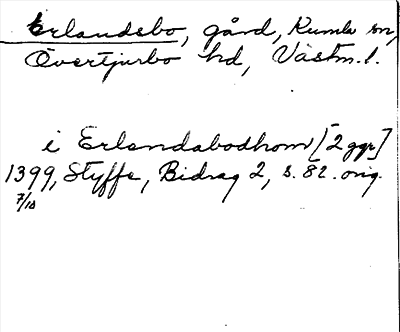 Erlandsbo, gård, Kumla sn,
Övertjurbo hd, Västm. l.
i Erlandabodhom [2 ggr]
1399, Styffe, Bidrag 2, s. 82. orig.
7/10